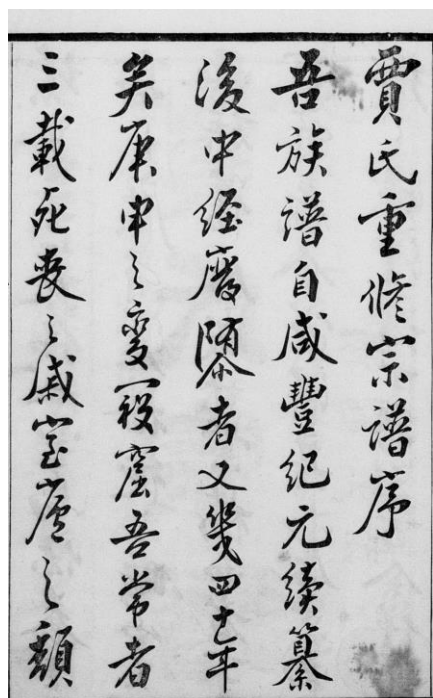 賈氏重修宗譜序
吾族譜自咸豐紀元續纂
後中經廢隳者又幾四十年
矣庚申之變寇窟吾常者
三載死喪之戚室廬之頹